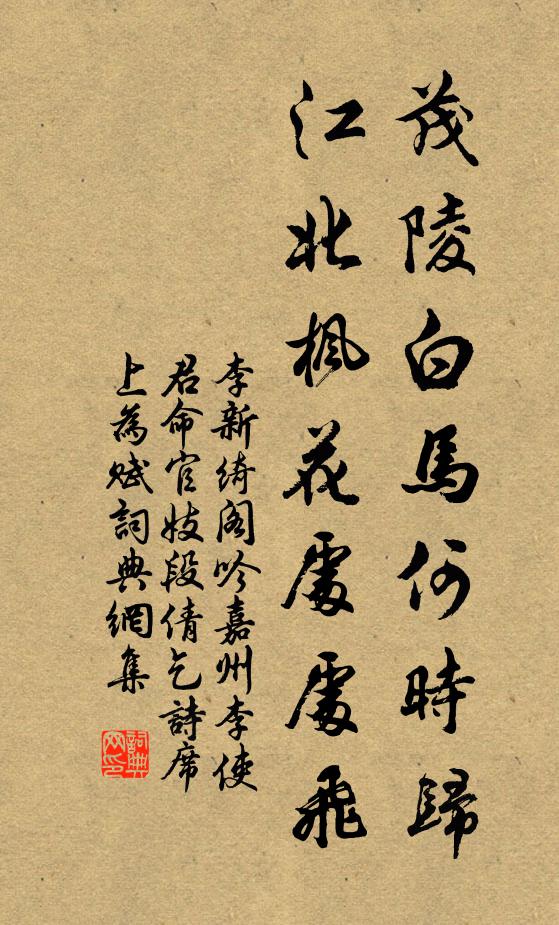 茂陵白馬何時歸
江北楓花處處飛
李新綺閣吟嘉州李使
君命官妓段倩乞詩席
上為賦詞典網集
詞典網印